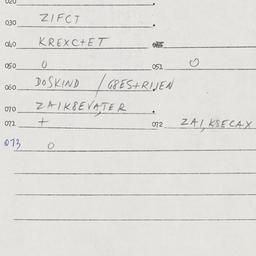 020
030 ZIFCT
040 KREXC+ET
050 0 051 0
060 DOSKIND / GBES+RIJEN
070 ZAIKBEVATER
071 + 072 ZAI,KSECAX
073 0